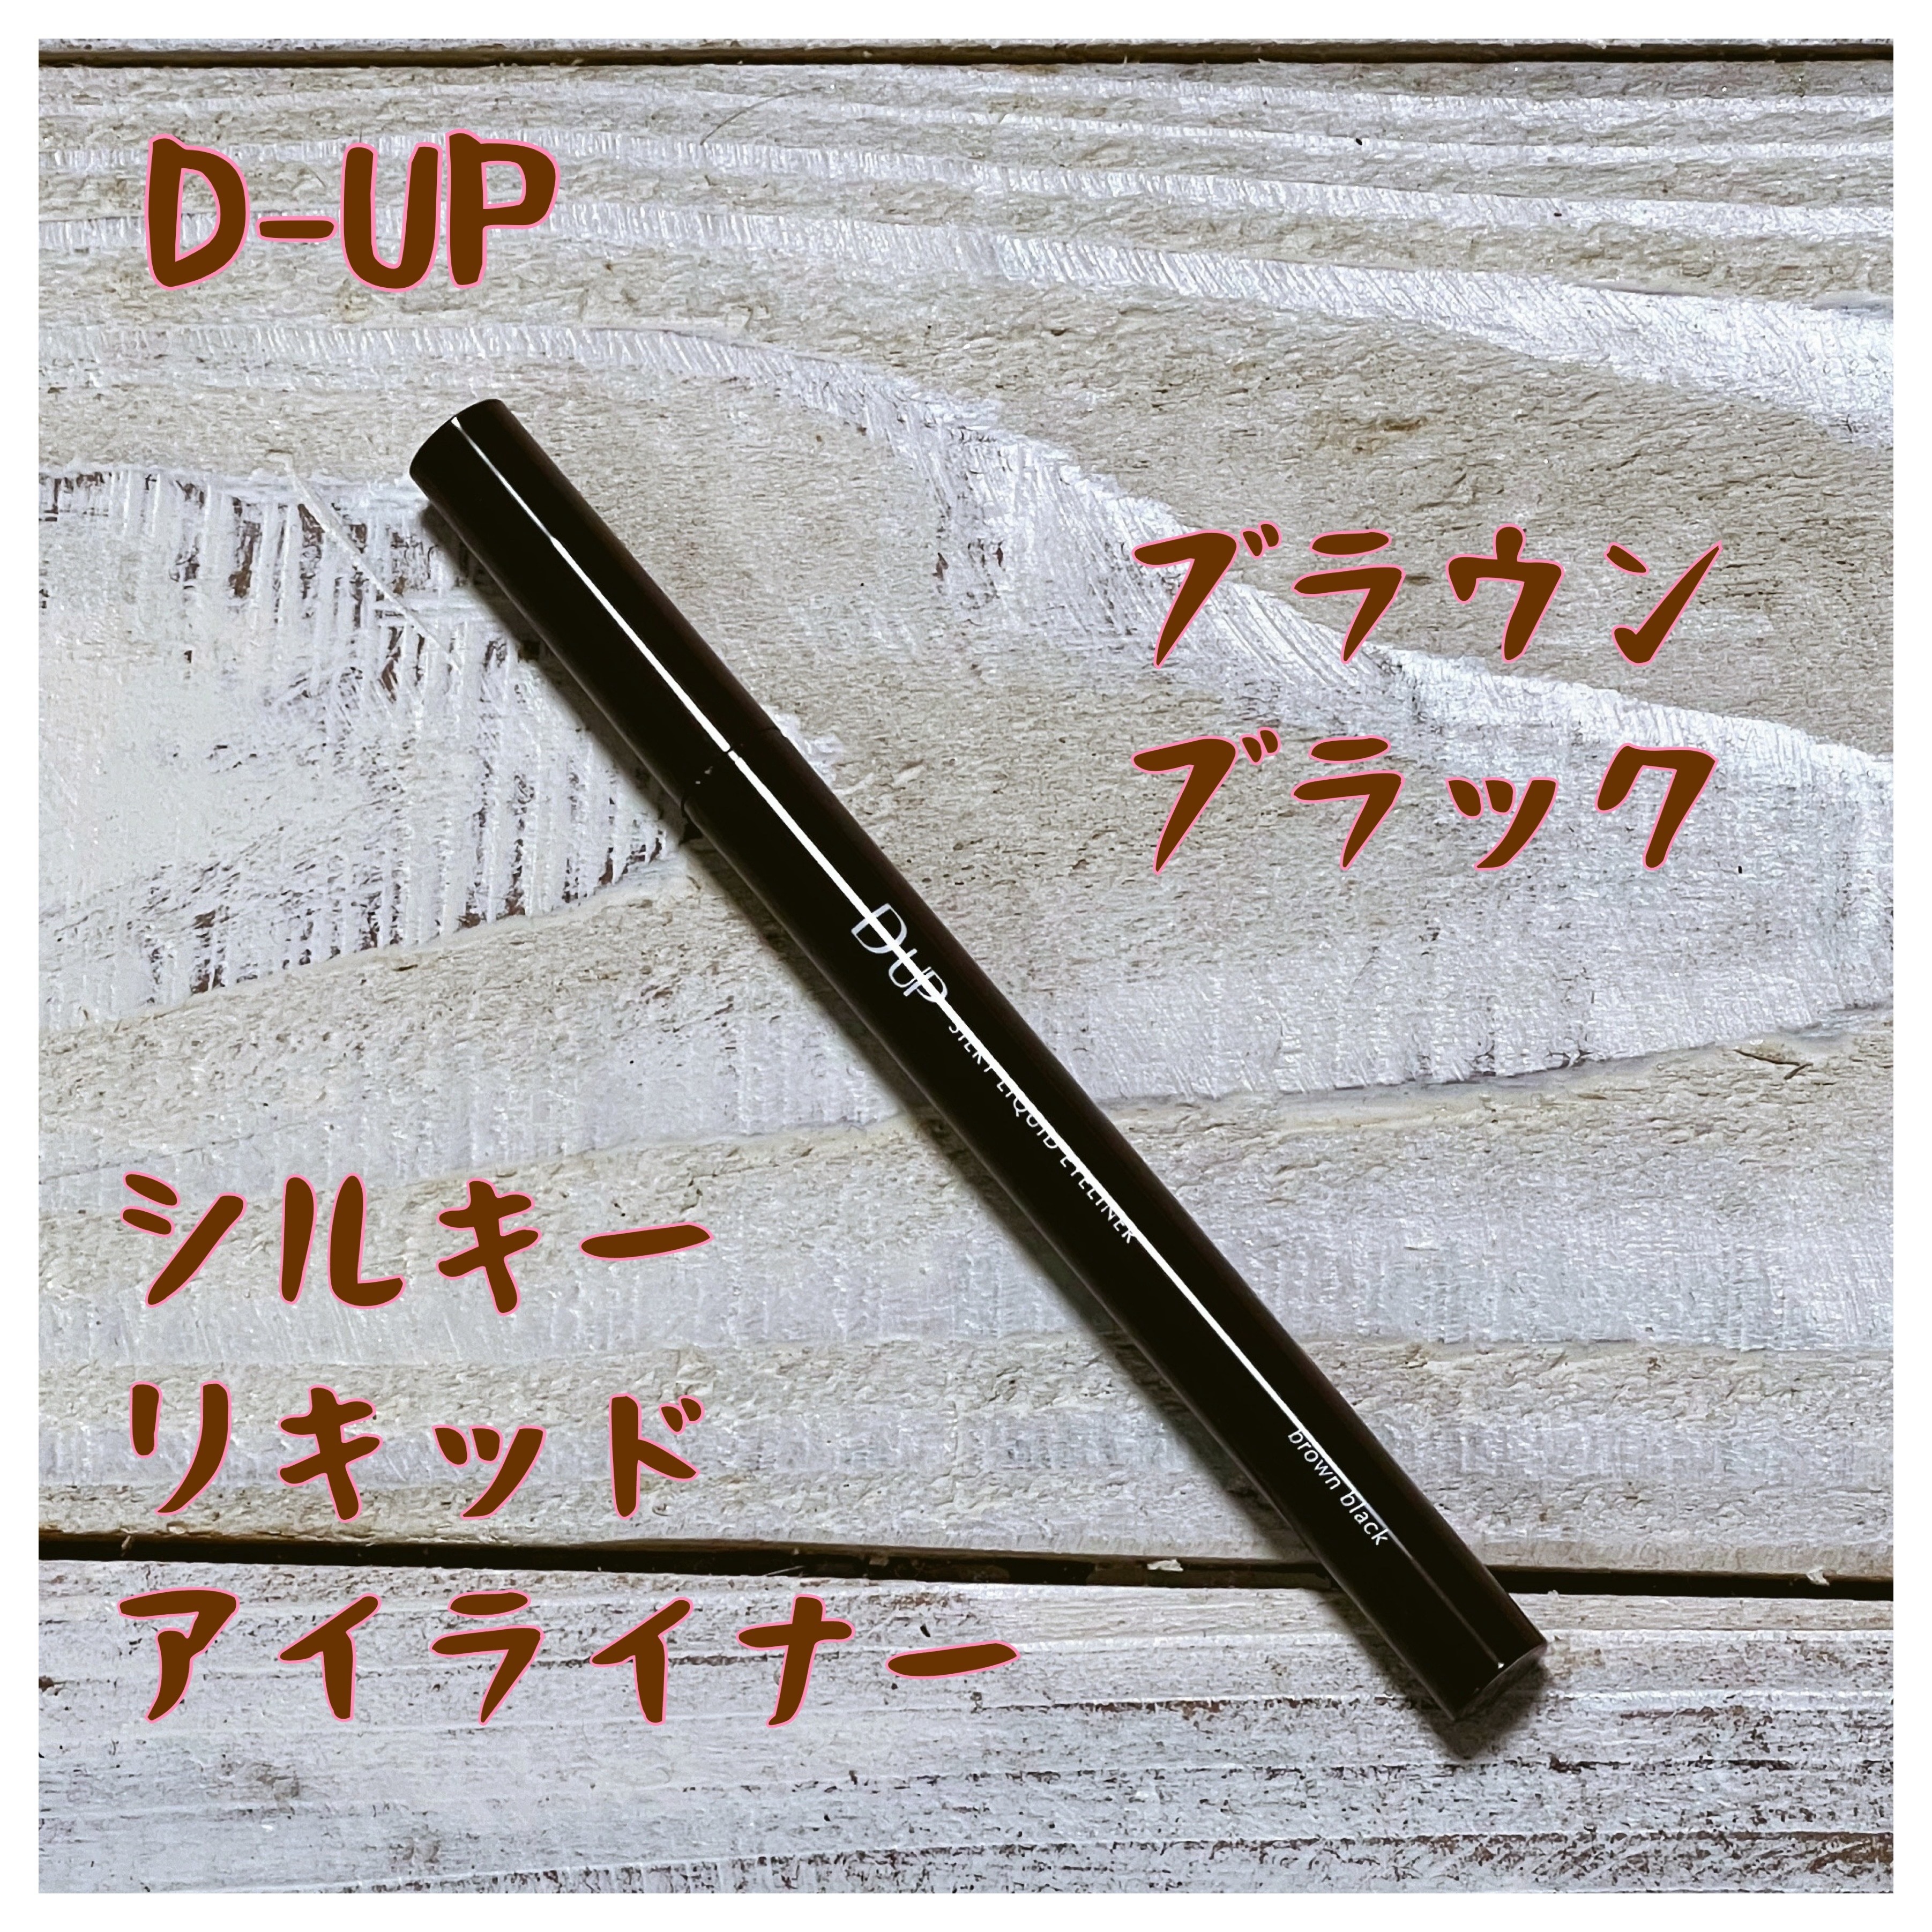 D-UP
ブラウン
ブラック
D-UP SILKY LIQUID EYELINER
brown black
シルキー
リキッド
アイライナー